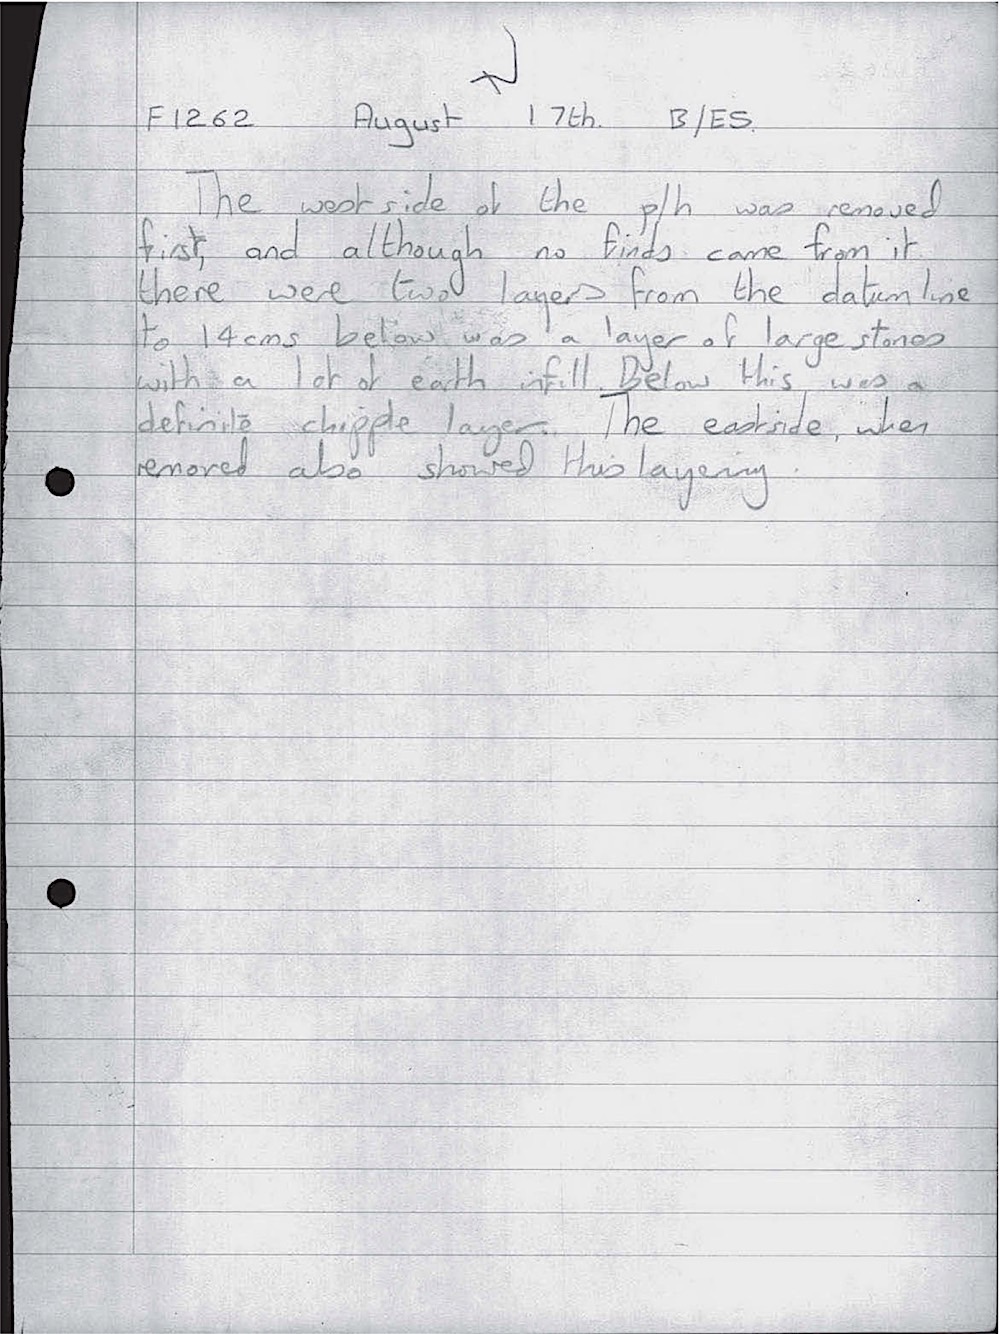 F1262 August 17th. B/ES.
The west side of the p/h was removed
first, and although no finds came from it
there were two layers from the datum line
to 14cms below was a layer of large stones
with a lot of earth infill. Below this was a
definite chipple layer. The eastside, when
removed also showed this layering.